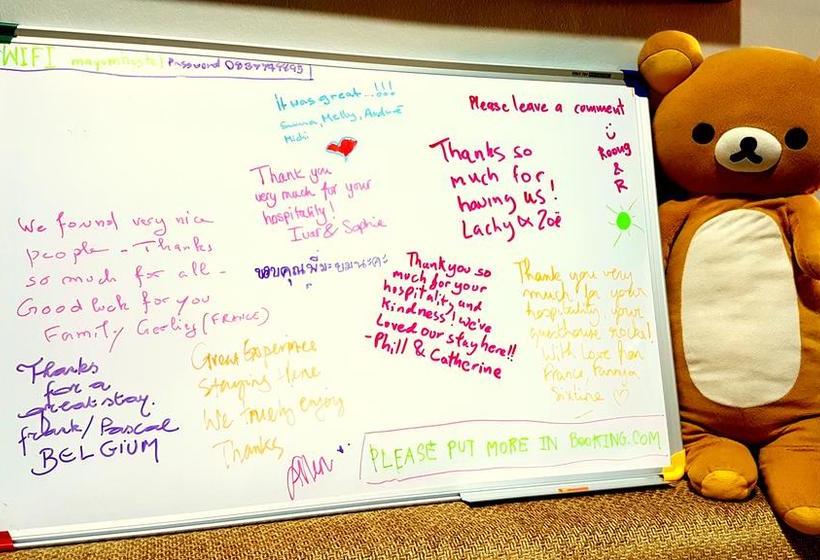 WIFI Password
it was great...!!!
Melly, André
Please leave a comment
Roong
&
R
Thank you
very much for your
hospitality!
& Sophie
Thanks so
much for
having us!
Lachy & Zoë
We found very nice
people - Thanks
so much for all -
Good luck for you
Family (FRANCE)
ขอบคุณพี่มะยมนะคะ
Thank you so
much for your
hospitality and
kindness! We've
Loved our stay here!!
- Phill & Catherine
Thank you very
much for your
hospitality, your
guesthouse rocks!
With love from
France
Sixtine
Thanks
for a
great stay.
frank / Pascal
BELGIUM
Great Experience
staying here
We truely enjoy
Thanks
PLEASE PUT MORE IN BOOKING.COM